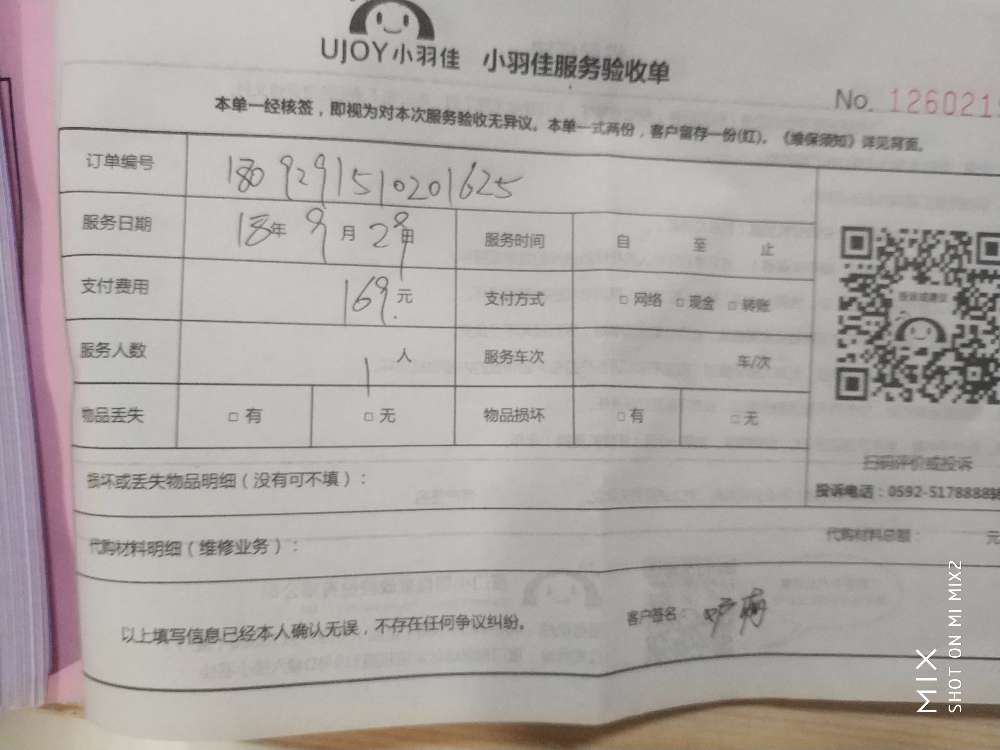 UJOY小羽佳 小羽佳服务验收单
No. 126021
本单一经核签，即视为对本次服务验收无异议。本单一式两份，客户留存一份(红)。《维保须知》详见背面。
订单编号 1809291510201625
服务日期 18年 9月 29日 服务时间 自 至 止
投诉或建议
支付费用 169元 支付方式 □ 网络 □ 现金 □ 转账
服务人数 1人 服务车次 车/次
物品丢失 □ 有 □ 无 物品损坏 □ 有 □ 无
扫码评价或投诉
损坏或丢失物品明细（没有可不填）：
投诉电话：0592-5178888转
代购材料明细（维修业务）： 代购材料总额： 元
以上填写信息已经本人确认无误，不存在任何争议纠纷。 客户签名：
MIX
SHOT ON MI MIX2